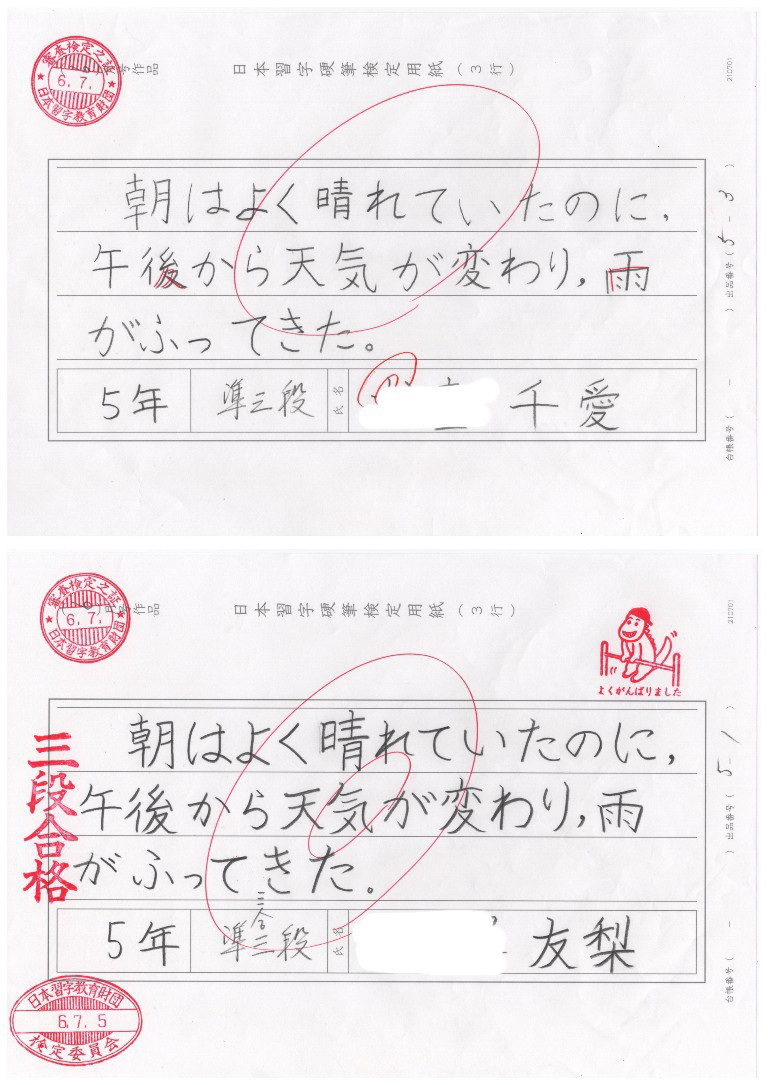 審査検定之証
6.7.
日本習字教育財団
号作品
日本習字硬筆検定用紙（3行）
210701
朝はよく晴れていたのに，
午後から天気が変わり，雨
がふってきた。
5年
準三段
氏名
千愛
出品番号（5-3）
台帳番号（ - ）
審査検定之証
6.7.
日本習字教育財団
月号作品
日本習字硬筆検定用紙（3行）
210701
よくがんばりました
三段合格
朝はよく晴れていたのに，
午後から天気が変わり，雨
がふってきた。
5年
準三段
三合
氏名
友梨
出品番号（5-1）
台帳番号（ - ）
日本習字教育財団
6.7.5
検定委員会